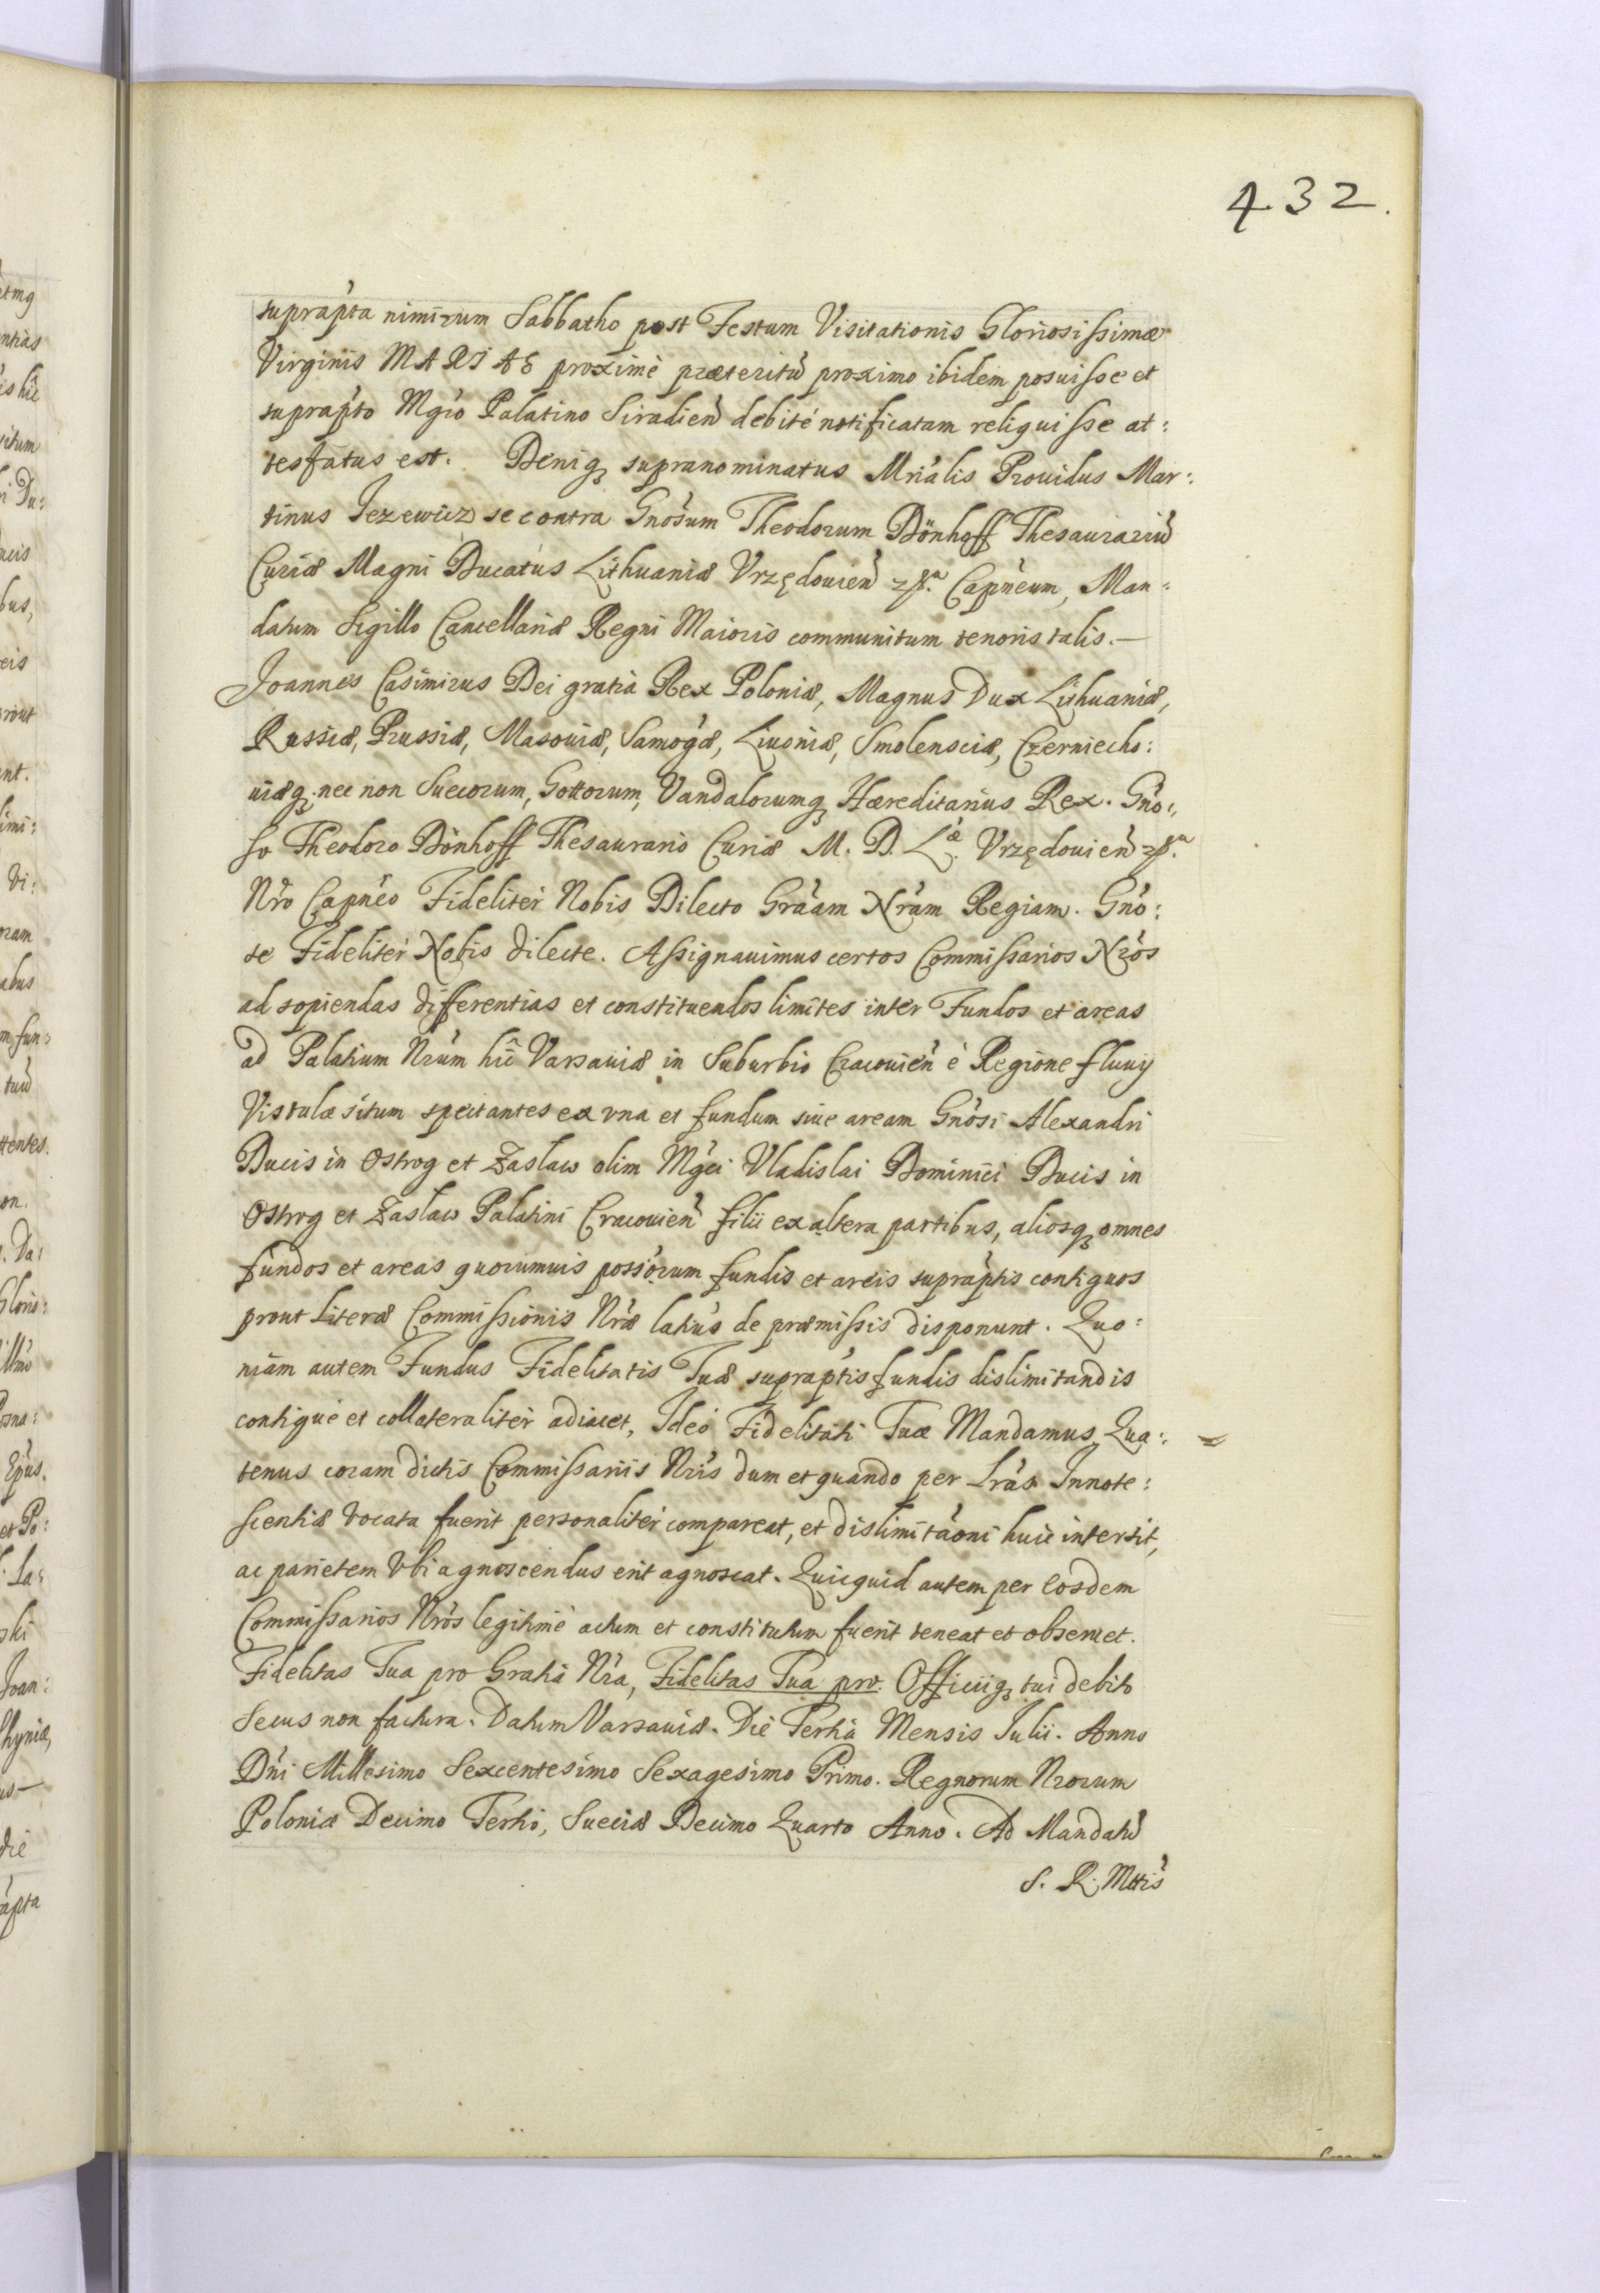 432.
suprapta nimirum Sabbatho post Festum Visitationis Gloriosissimæ
Virginis MARIAE proximè præteritũ proximo ibidem posuisse et
suprapto Mgco Palatino Siradieñ debité notificatam reliquisse at:
testatus est. Deniq supranominatus Mrialis Prouidus Mar:
tinus Jezewicz se contra Gnosum Theodorum Dönhoff Thesaurariũ
Curiæ Magni Ducatus Lithuaniæ Vrzędouieñ Capneum, Man:
datum Sigillo Cancellariæ Regni Maioris communitum tenoris talis.—
Joannes Casimirus Dei gratia Rex Poloniæ, Magnus Dux Lithuaniæ,
Russiæ, Prussiæ, Masouiæ, Samogæ, Liuoniæ, Smolensciæ, Czerniecho:
uiæq nec non Suecorum, Gottorum, Vandalorumq Hæreditarius Rex. Gno:
so Theodoro Dönhoff Thesaurario Curiæ M. D. Læ. Vrzędouieñ
Nro Capneo Fideliter Nobis Dilecto Graam Nram Regiam. Gno:
se Fideliter Nobis dilecte. Assignauimus certos Commissarios Nros
ad sopiendas differentias et constituendos limites inter Fundos et areas
ad Palatium Nrum hic Varsauiæ in Suburbio Cracouieñ è Regione fluuij
Vistulæ situm spectantes ex vna et fundum siue aream Gnosi Alexandri
Ducis in Ostrog et Zaslaw olim Mgci Vladislai Dominici Ducis in
Ostrog et Zaslaw Palatini Cracouieñ filii ex altera partibus, aliosq omnes
fundos et areas quorumuis possorum fundis et areis supraptis contiguos
prout Literæ Commissionis Nræ latius de præmissis disponunt. Quo:
niam autem Fundus Fidelitatis Tuæ supraptis fundis dislimitandis
contiguè et collateraliter adiacet, Ideo Fidelitati Tuæ Mandamus Qua:
tenus coram dictis Commissariis Nris dum et quando per Lras Innote:
scentiæ vocata fuerit personaliter compareat, et dislimitaoni huic intersit,
ac parietem vbi agnoscendus erit agnoscat. Quicquid autem per eosdem
Commissarios Nros legitimè actum et constitutum fuerit teneat et obseruet.
Fidelitas Tua pro Gratia Nra, Fidelitas Tua pro Officiiq tui debito
Secus non factura. Datum Varsauiæ. Die Tertia Mensis Julii. Anno
Dni Millesimo Sexcentesimo Sexagesimo Primo. Regnorum Nrorum
Poloniæ Decimo Tertio, Sueciæ Decimo Quarto Anno. Ad Mandatũ
S. R. Mttis